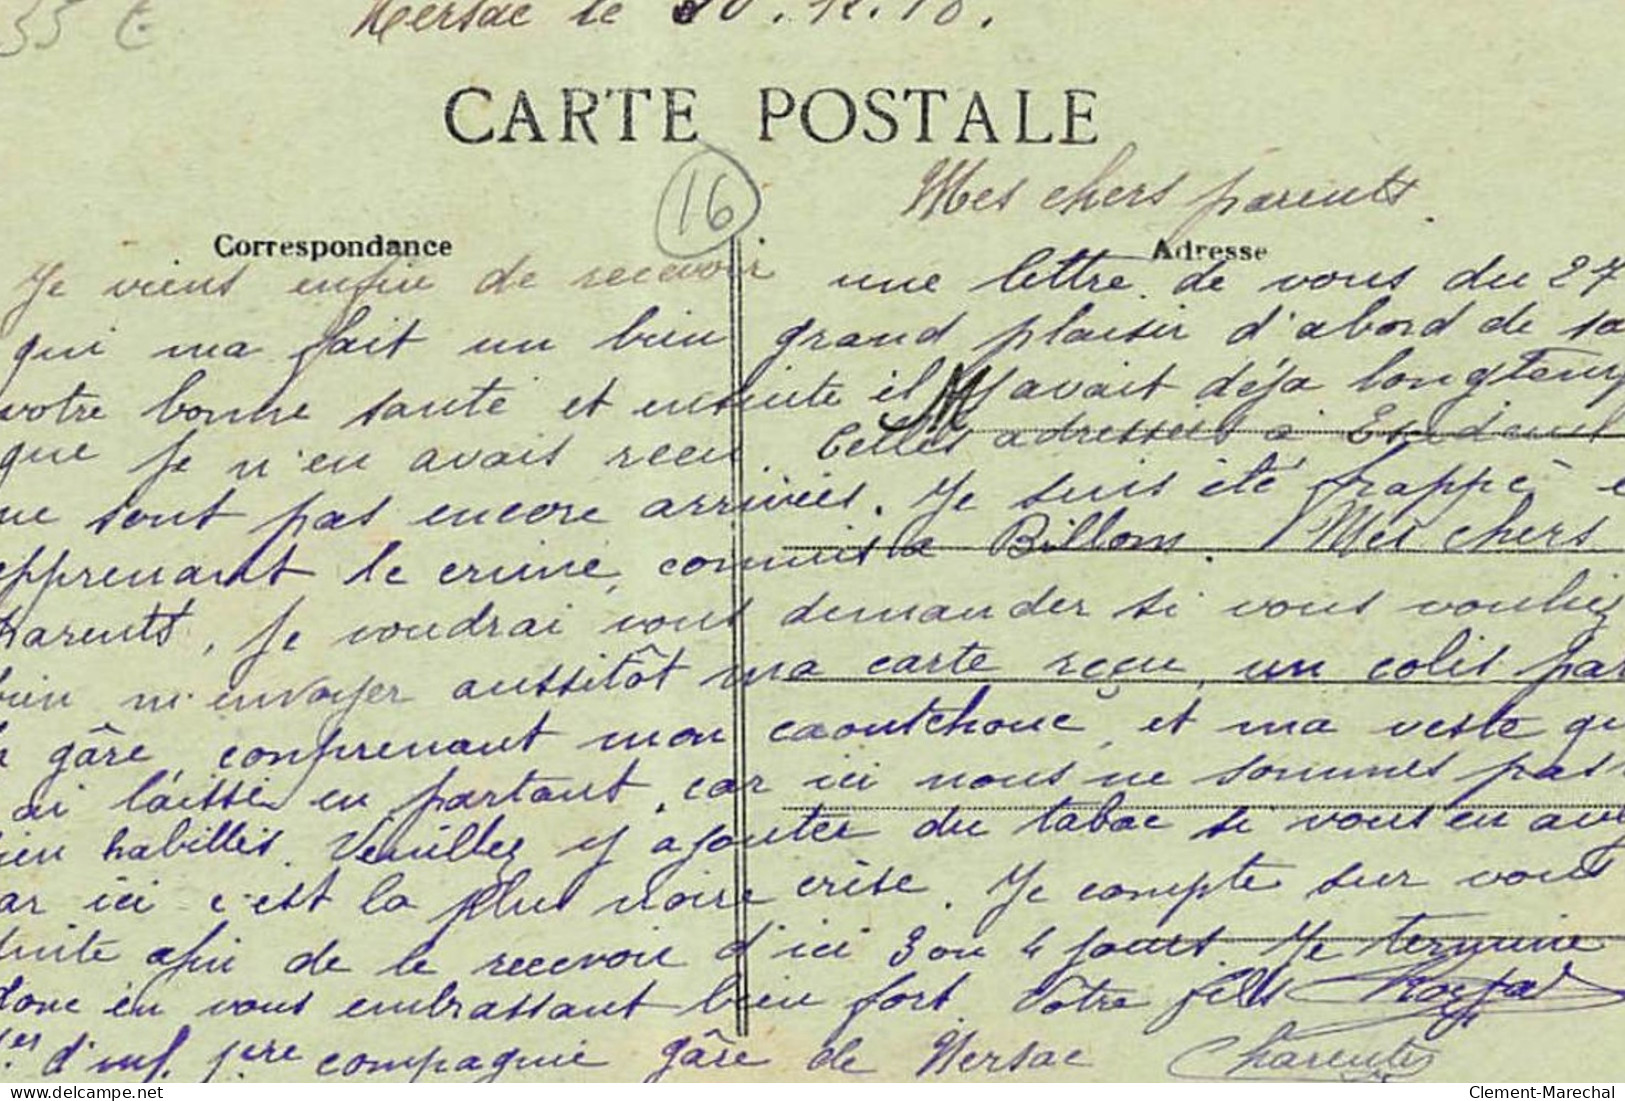 35 €
Mersac le 30.12.18.
CARTE POSTALE
16
Mes chers parents.
Correspondance
Adresse
Je viens enfin de recevoir une lettre de vous du 27
qui ma fait un bien grand plaisir d'abord de
votre bonne santé et ensuite il y avait déja longtemps
que je n'en avais recu. Celles adressées à
ne sont pas encore arrivées. Je suis été frappé
apprenant le crime, commis a Billom. Mes chers
parents, je voudrai vous demander si vous vouliez
bien m'envoyer aussitôt ma carte reçu, un colis par
la gâre, comprenant mon caoutchouc, et ma veste
ai laissé en partant, car ici nous ne sommes pas
bien habillés. Veuillez y ajouter du tabac si vous en
ar ici c'est la plus noire crise. Je compte sur vous
afin de le recevoir d'ici 3 ou 4 jours. Je termine
donc en vous embrassant bien fort. Votre fils
d'inf. 1ere compagnie gâre de Nersac Charente
Clement-Marechal